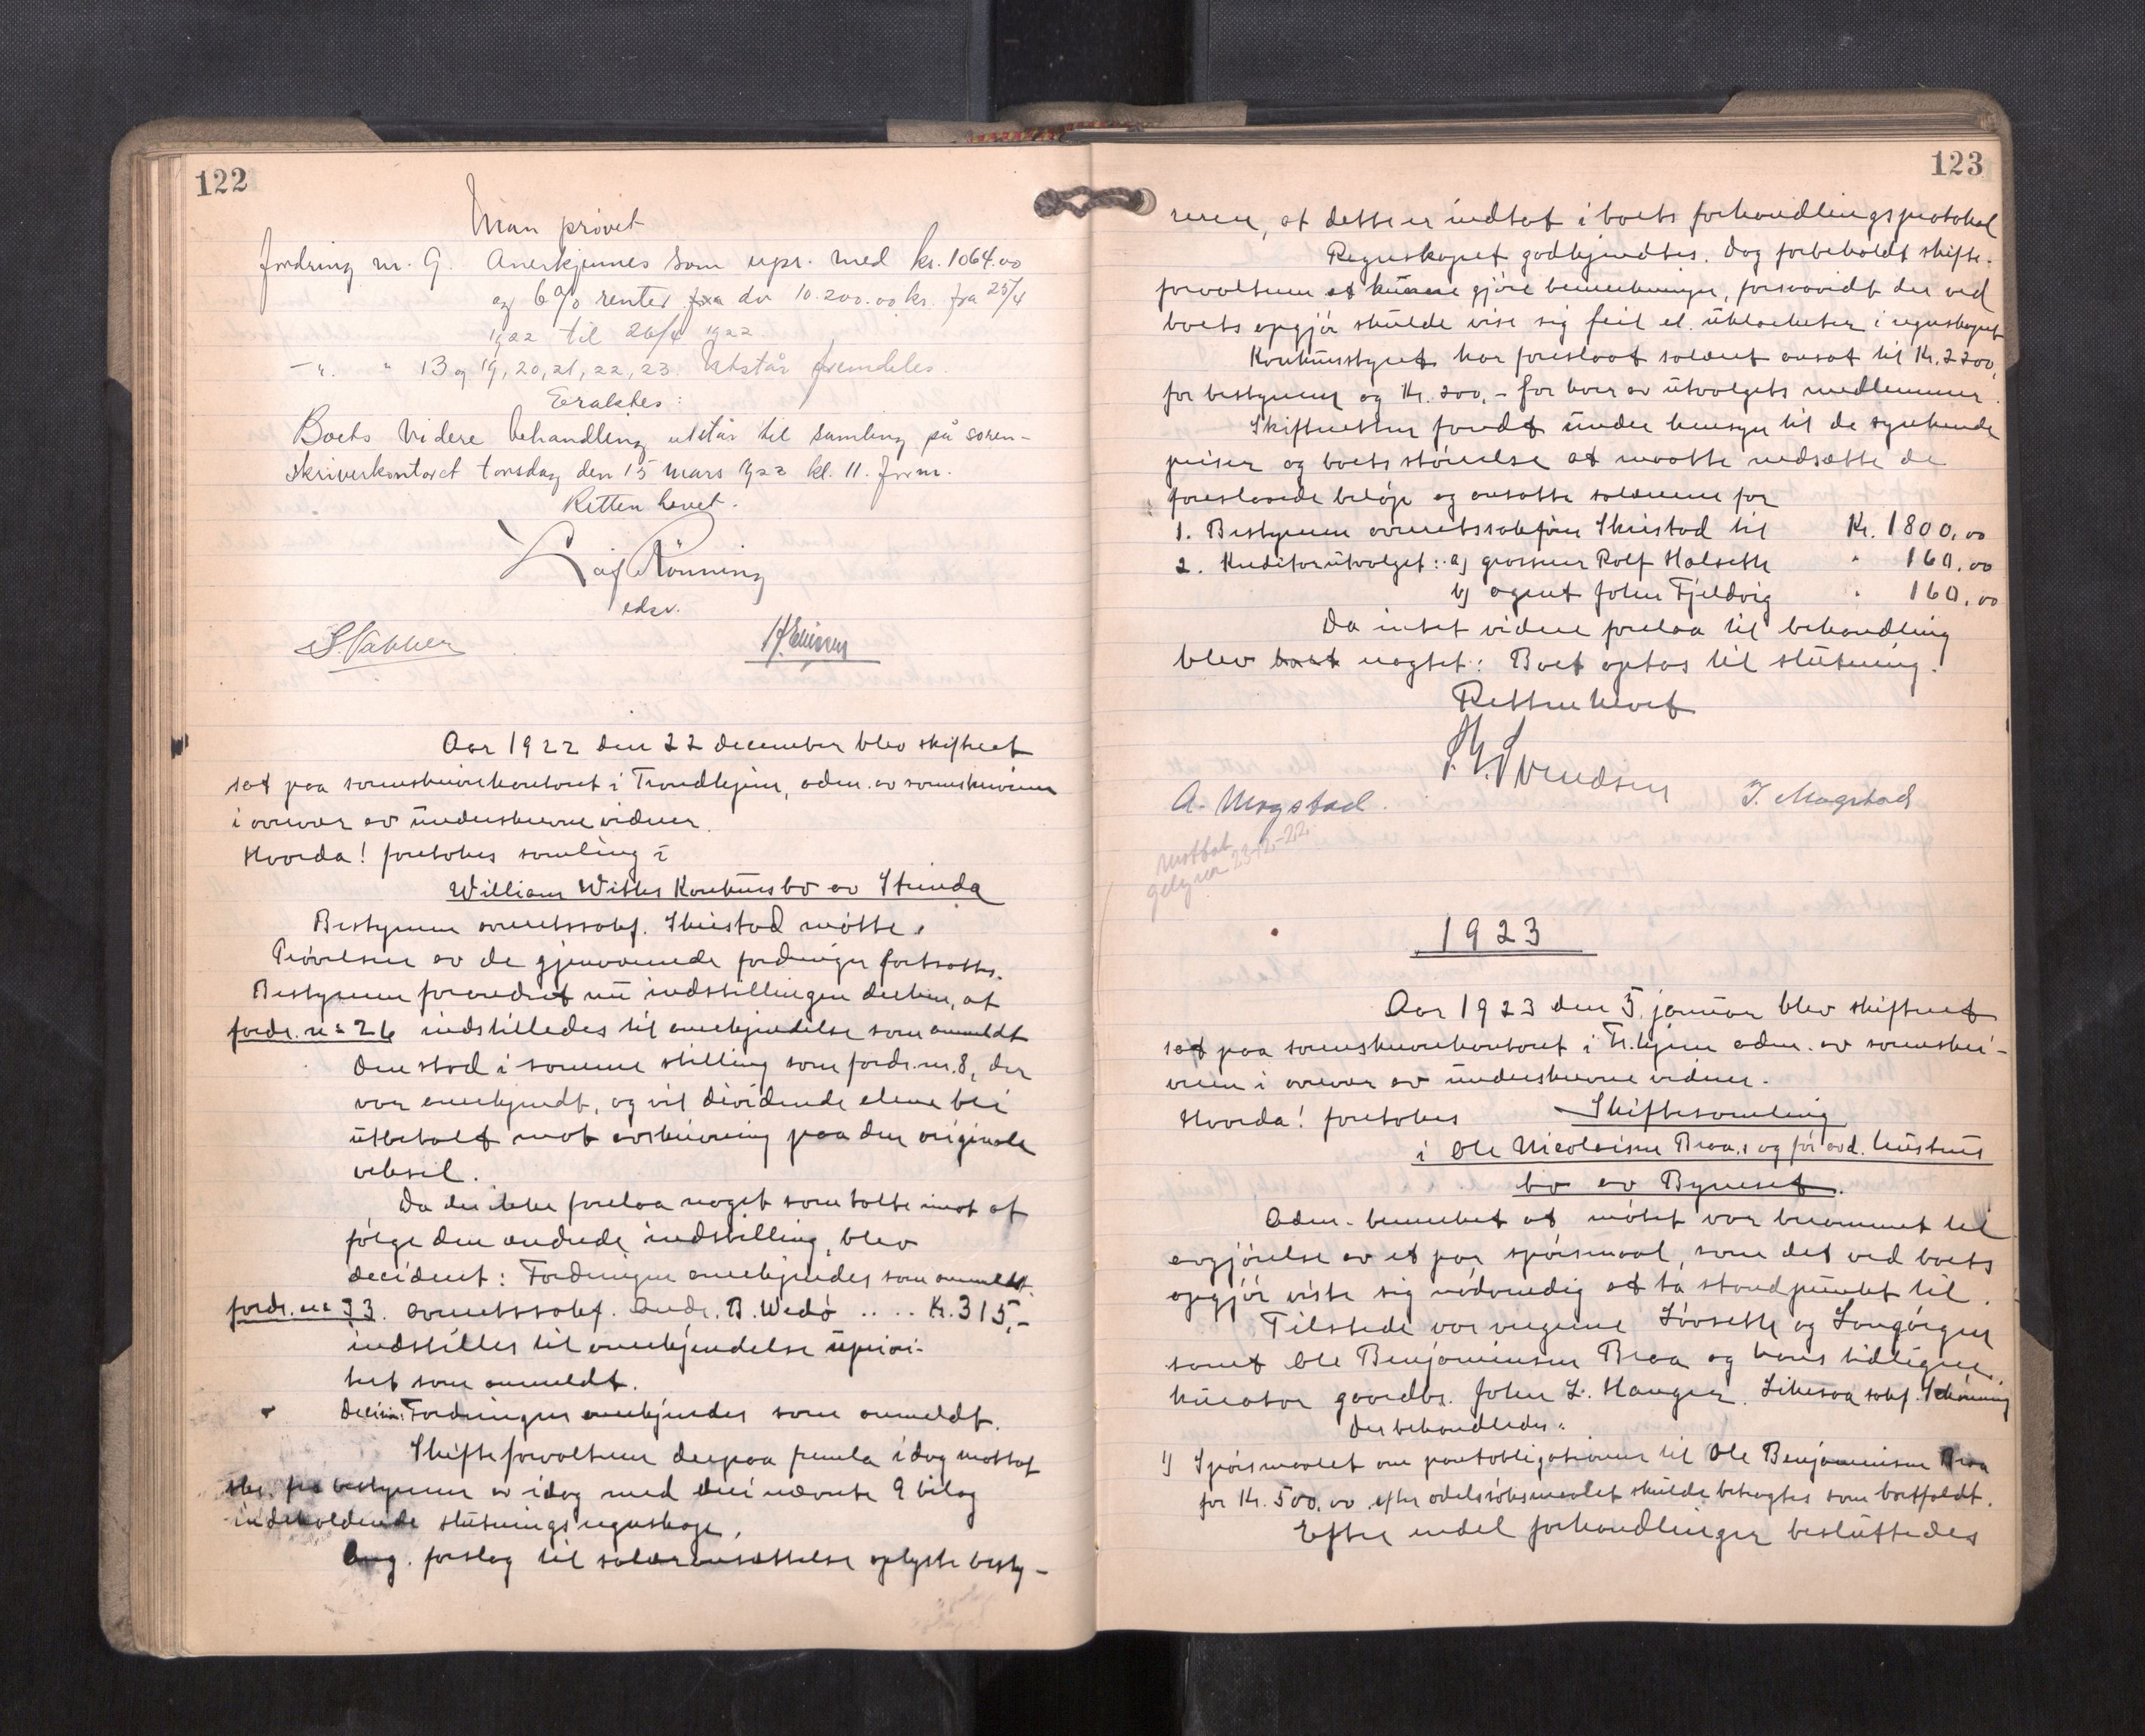 122
Man prøvet
Fordring nr. 9. Anerkjennes som upr. med kr. 1064.00
og 6% renter fra do 10.200.00 kr. fra 25/4
1922 til 26/4 1922.
—"— " 13 og 19, 20, 21, 22, 23. Utstår fremdeles.
Eraktes:
Boets videre behandling utstår til samling på soren-
skriverkontoret torsdag den 15 mars 1923 kl. 11. form.
Retten hevet.
Leif Rönning
edsv.
Aar 1922 den 22 december blev skifteret
sat paa sorenskriverkontoret i Trondhjem, adm. av sorenskriveren
i overvær av underskrevne vidner.
Hvorda! foretokes samling i
William Withs Konkursbo av Strinda
Bestyreren overretssakf. Skeistad møtte.
Prøvelsen av de gjenværende fordringer fortsattes.
Bestyreren forandret nu indstillingen derhen, at
fordr. nr 26 indstilledes til anerkjendelse som anmeldt
Den stod i samme stilling som fordr. nr. 8, der
var anerkjendt, og vil dividende alene bli
utbetalt mot avskrivning paa den originale
veksel.
Da der ikke forelaa noget som talte imot at
følge den ændrede indstilling, blev
decidert: Fordringen anerkjendes som anmeldt.
fordr. nr 33. overretssakf. Andr. B. Wedø .... Kr. 315,-
indstilles til anerkjendelse upriori-
tert som anmeldt.
Decision: Fordringen anerkjendes som anmeldt.
Skifteforvalteren derpaa fremla idag mottat
skr. fra bestyreren av idag med deri nævnte 9 bilag
indeholdende slutningsregnskap.
Ang. forslag til salæransættelse oplyste besty-
123
reren, at dette er indtat i boets forhandlingsprotokol
Regnskapet godkjendtes. Dog forbeholdt skifte-
forvalteren at kunne gjøre bemerkninger, forsaavidt der ved
boets opgjør skulde vise sig feil el. uklarheter i regnskapet
Konkursstyret har foreslaat salæret ansat til Kr. 2200,
for bestyreren og Kr. 200,- for hver av utvalgets medlemmer.
Skifteretten fandt under hensyn til de synkende
priser og boets størrelse at maatte nedsætte de
foreslaaede beløp og ansatte salærene for
1. Bestyreren overretssakfører Skeistad til Kr. 1800,00
2. Kreditorutvalget: a) grosserer Rolf Halseth " 160,00
b) agent John Fjeldvig " 160,00
Da intet videre forelaa til behandling
blev boet vagtet: Boet optas til slutning.
Retten hevet
A. Mogstad. J. Mogstad
23-12-22
1923
Aar 1923 den 5. januar blev skifteret
sat paa sorenskriverkontoret i Tr.hjem adm. av sorenskri-
veren i overvær av underskrevne vidner.
Hvorda! foretokes Skiftesamling
i Ole Nicolaisen Braa,s og før avd. hustrus
bo av Byneset.
Adm. bemerket at møtet var berammet til
avgjørelse av et par spørsmaal, som det ved boets
opgjør viste sig nødvendig at ta standpunkt til.
Tilstede var vergerne Løvseth og Langørgen
samt Ole Benjaminsen Braa og hans tidligere
kurator gaardbr. John L. Hangran. Likesaa sakf. Schønning
Der behandledes:
1) Spørsmaalet om pantobligationen til Ole Benjaminsen Braa
for Kr. 500,00 efter odelsløsmaalet skulde betragtes som bortfaldt.
Efter endel forhandlinger besluttedes